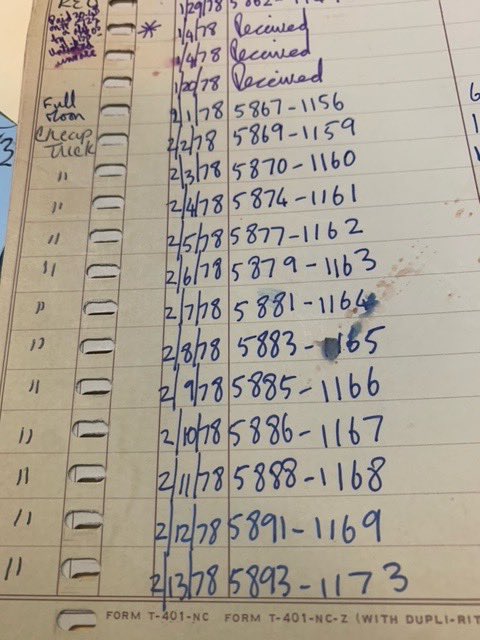 1/29/78
* 1/4/78 Received
1/4/78 Received
1/20/78 Received
Full Moon 2/1/78 5867-1156
Cheap Trick 2/2/78 5869-1159
" 2/3/78 5870-1160
" 2/4/78 5874-1161
" 2/5/78 5877-1162
" 2/6/78 5879-1163
" 2/7/78 5881-1164
" 2/8/78 5883-1165
" 2/9/78 5885-1166
" 2/10/78 5886-1167
" 2/11/78 5888-1168
" 2/12/78 5891-1169
" 2/13/78 5893-1173
FORM T-401-NC FORM T-401-NC-Z (WITH DUPLI-RIT